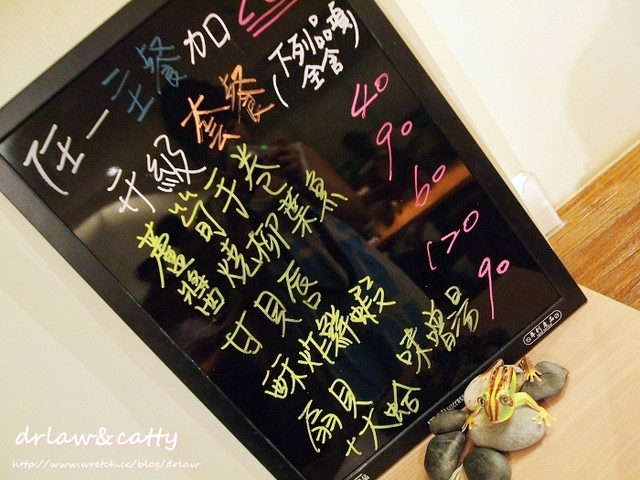 任一主餐加
升級套餐(下列品項
全含)
蘆筍手卷 40
醬燒柳葉魚 90
甘貝唇 60
酥炸鮮蝦 120
扇貝 味噌湯 90
+大蛤
drlaw&catty
http://www.wretch.cc/blog/drlaw